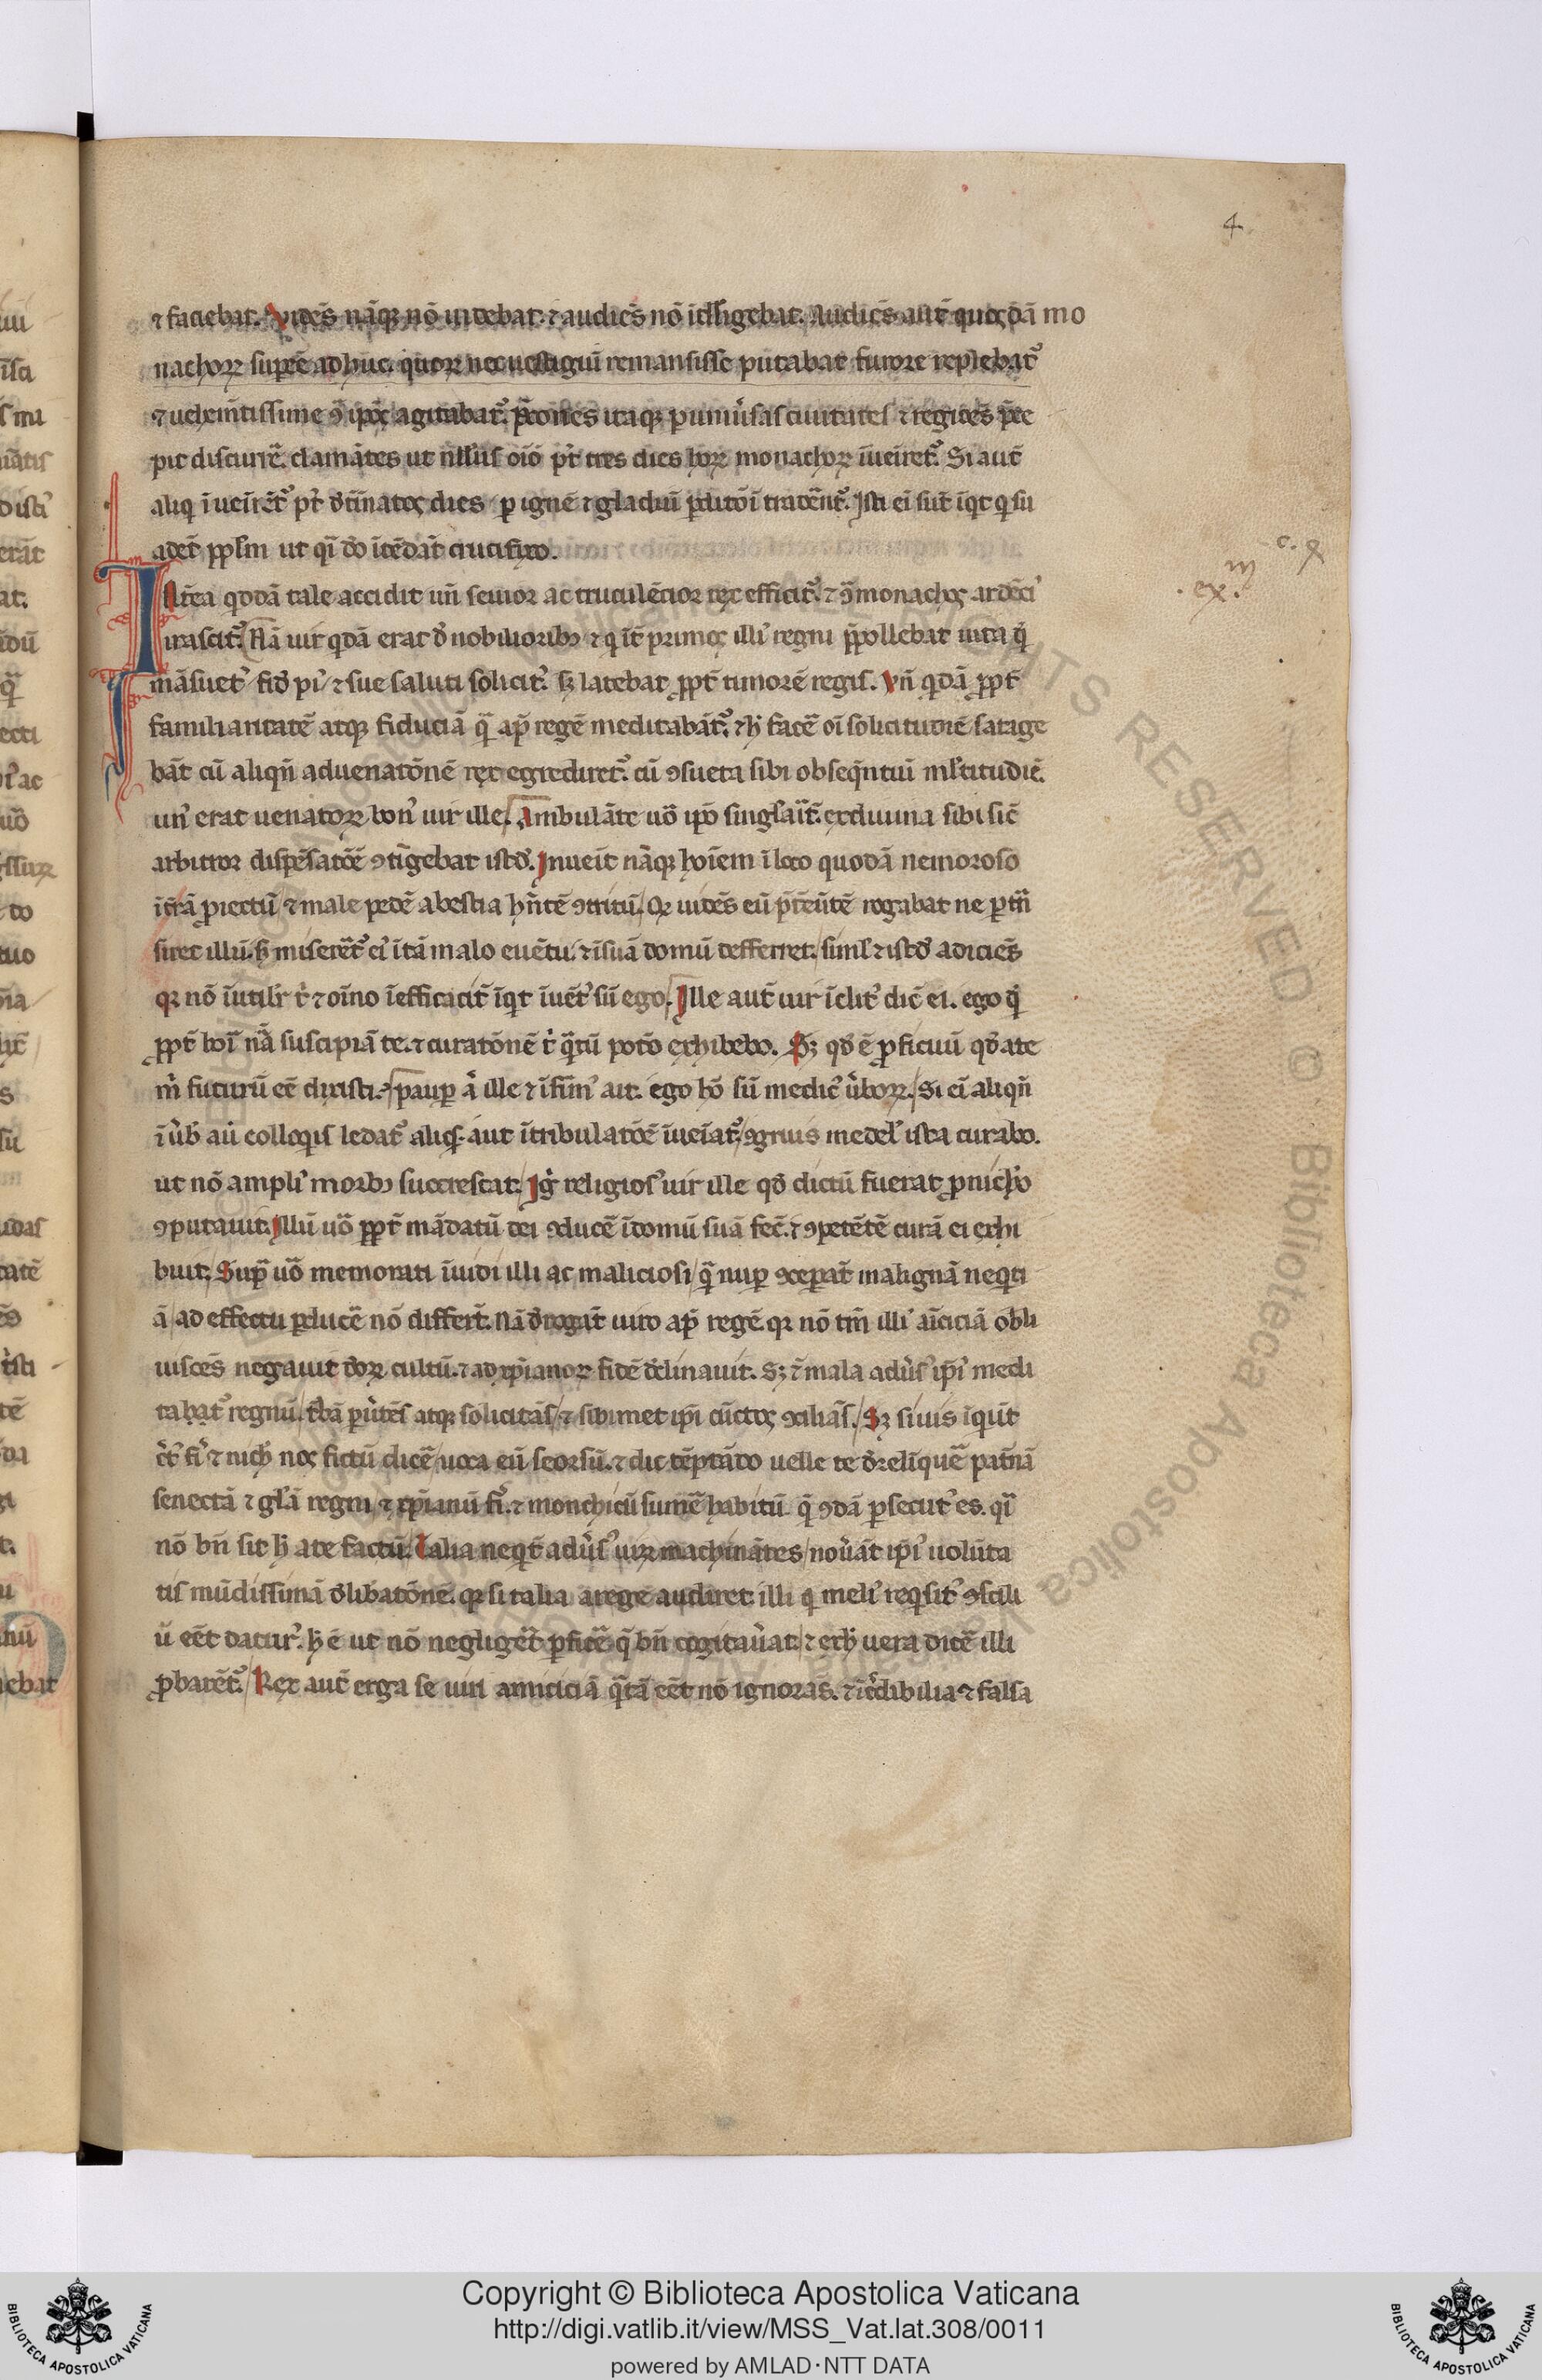 4
⁊ faciebat. Vidēs nāq; nō uidebat. ⁊ audiēs nō ītelligebat. Audiēs aut̄ quosdā mo
nachoꝝ sup̄ēē adhuc. quoꝝ nec uestigiū remansisse putabat furore replebat᷑
⁊ uehemītissime ꝯ ip̄os agitabat᷑. p̄cones itaq; p uniu̾sas ciuitates ⁊ regiōēs p̄ce
pit discurrē. clamātes ut nllus oīo pꝰt tres dies hoꝝ monachoꝝ īueiret᷑. Si aut̄
aliq īueiret᷑ pꝰt d̾t̄minatos dies / p ignē ⁊ gladiū pditōi tradēnt᷑. Isti ei sūt īqt q su
adēt pplm ut qi do ītēdāt crucifixo.
c. ꝗ
m
. ex.
Intrea qddā tale accidit un̄ seuior ac truculētior rex efficit᷑. ⁊ ꝯ monachos ardēcꝰ
irascit᷑. Nā uir qdā erat d̾ nobilioribꝫ ⁊ q īt̄ primos illiꝰ regni p̄pollebat uita q̄
māsuetꝰ fid̾ piꝰ ⁊ sue saluti solicitꝰ. sꝫ latebat ꝓpt̄ timorē regis. Vn̄ qdā ꝓpt̄
familiaritatē atq; fiduciā q̄ ap̄ regē meditabāt᷑. ⁊ h̾ facē oī solicitudiē satage
bāt cū aliqn̄ aduenatōnē rex egrediret᷑. cū ꝯsueta sibi obseq̄ntiū ml̾titudiē.
unꝰ erat uenatoꝝ bonꝰ uir ille. Ambulāte uō ip̄o singlaīt̄. ex diuina sibi sic̄
arbitror dispēsatōē ꝯtīgebat istd̾. Inueit nāq; hoīem ī loco quodā nemoroso
ī t̄rā ꝓiectū / ⁊ male pedē abestia hn̄tē ꝯtritū. Qꝛ uidēs eū p̄t̾eūtē rogabat ne pt̄n̄
siret illū. sꝫ miseret᷑ eiꝰ ī tā malo euētu. ⁊ ī suā domū defferret. siml ⁊ istd̾ adiciēs
qꝛ nō īutil̾r t̾ ⁊ oīno īefficacit̄ īqt īuētꝰ sū ego. Ille aut̄ uir īclitꝰ dic̄ ei. ego q̄
ꝓpt̄ hoīs nā̄ suscipiā te. ⁊ curatōnē t̾ q̄tū potō exhibebo. Sꝫ qd̾ ē ꝓficuū qd̾ ate
m̾ futurū eē dixisti. paup a̾ ille ⁊ īfirmꝰ ait. ego hō sū medicꝰ u̾boꝝ. Si ei aliqn̄
ī u̾b̾ aū colloqis ledat᷑ aliqs. aut ī tribulatōē īueiat᷑ / ꝯgruis medelꝰ ista curabo.
ut nō ampliꝰ morbꝰ succrescat. Ig̾ religiosꝰ uir ille qd̾ dictū fuerat ꝓ nichº
ꝯputauit. Illū uō ꝓpt̄ mādatū dei ꝯducē ī domū suā fec̄. ⁊ ꝯpetētē curā ei exhi
buit. Supͣ uō memorati īuidi illi ac maliciosi / q̄ nup ꝯcepāt malignā neqti
ā / ad effectū pducē nō differt̄. Nā d̾rogāt uiro ap̄ regē. qꝛ nō tm̄ illiꝰ aīciciā obli
uiscēs negauit d̾oꝝ cultū. ⁊ ad xp̄ianoꝝ fidē d̾clinauit. Sꝫ ⁊ mala adu̾sꝰ ip̄iꝰ medi
tabat᷑ regnū. t̾bā pu̾tēs atq; solicitās / ⁊ sibimet ip̄i cūctos ꝯciliās. Sꝫ si uis īqiūt
c̾tꝰ fiꝰ ⁊ nich̾ nos fictū dicē / uoca eū seorsū. ⁊ dic tēptādo uelle te d̾relīquē pat̄nā
senectā ⁊ glā regni ⁊ xp̄ianū fi᷑. ⁊ monchicū sumē habitū q̄ ꝯdā psecutꝰ es. qi
nō bn̄ sit h̾ ate factū. Talia neqt̄ adu̾sꝰ uiꝝ machinātes / nou̾āt ip̄iꝰ uolūta
tis mūdissimā d̾libatōnē. qꝛ si talia a rege audiret illi q meliꝰ reqsitꝰ ꝯscili
ū eēt daturꝰ. h̾ ē ut nō negligēt᷑ pficē q̄ bn̄ cogitau̾at / ⁊ exh̾ uera dicē illi
ꝓbarēt᷑. Rex aut̄ erga se uiri amiciciā q̄tā eēt nō ignorās. ⁊ īc̾dibilia ⁊ falsa
Copyright © Biblioteca Apostolica Vaticana
http://digi.vatlib.it/view/MSS_Vat.lat.308/0011
powered by AMLAD·NTT DATA
BIBLIOTECA APOSTOLICA VATICANA
BIBLIOTECA APOSTOLICA VATICANA